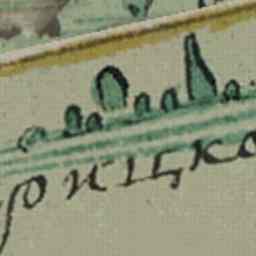 рицко